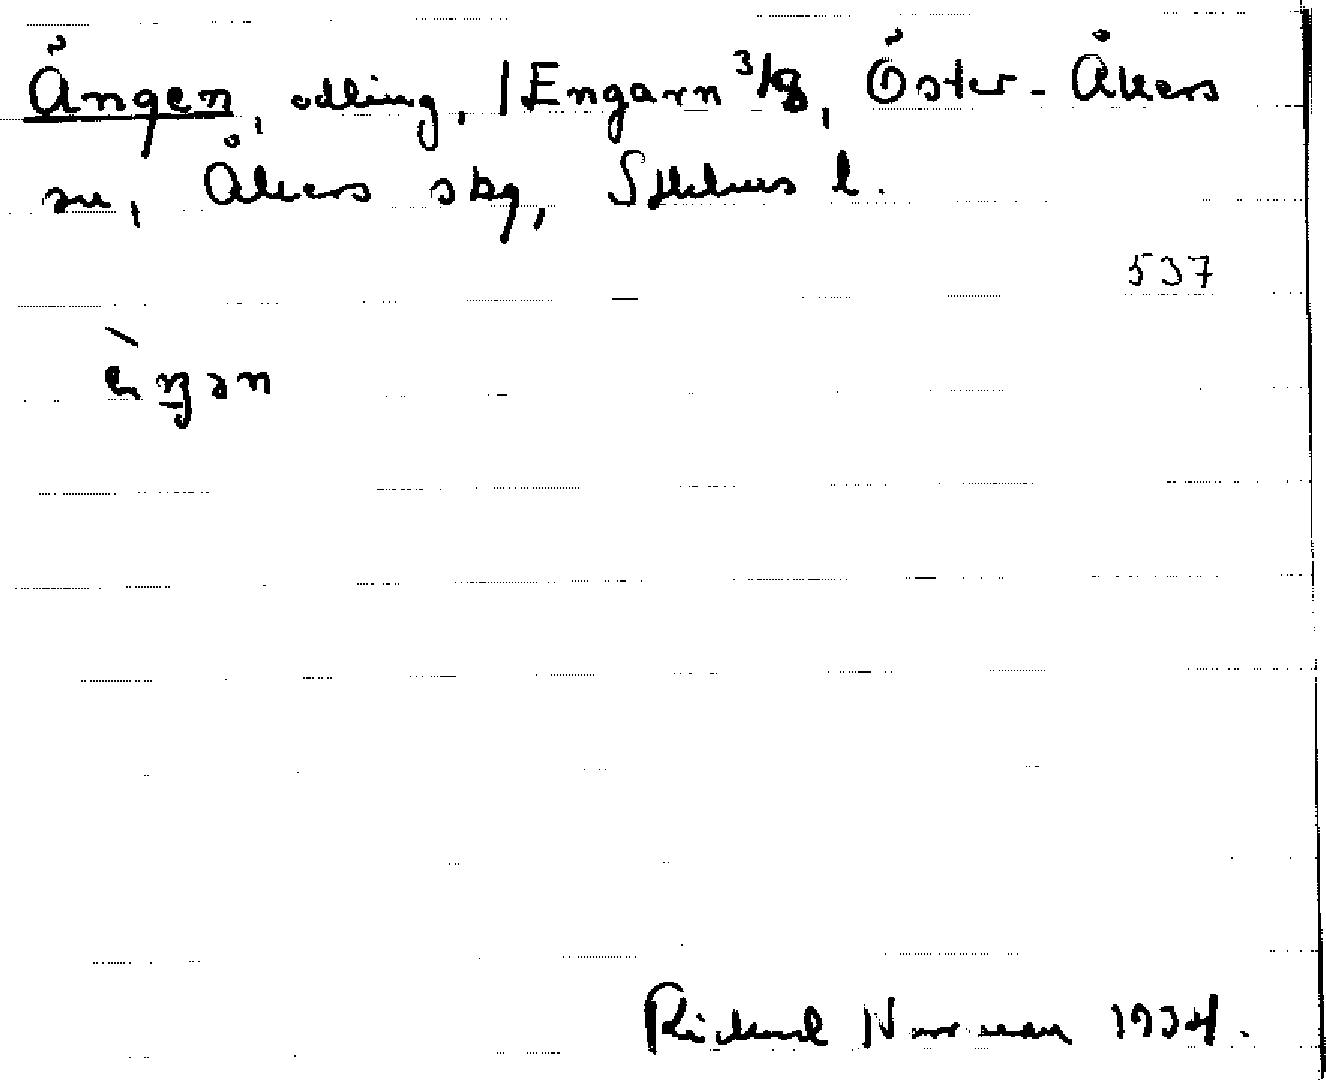 Ängen, odling, /Engarn 3/8, Öster-Åkers
sn, Åkers skg, Sthlms l.
537
èŋən
Rickard Norrman 1934.